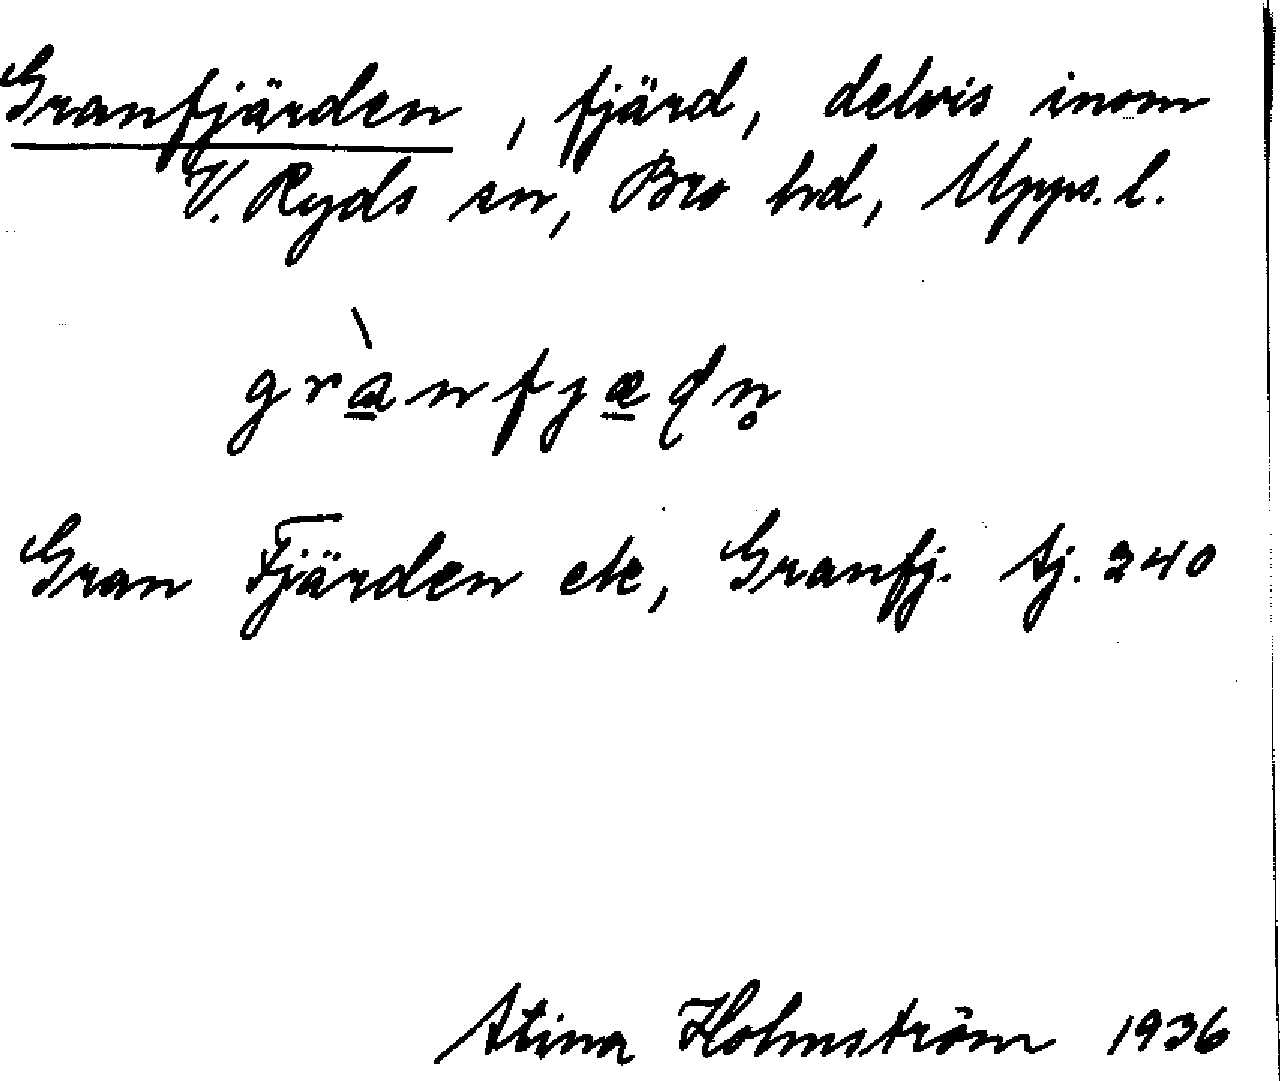 Granfjärden, fjärd, delvis inom
V. Ryds sn, Bro hd, Upps. l.
grànfjæɖn̥
Gran Fjärden ek, Granfj. tj. 240
Stina Holmström 1936